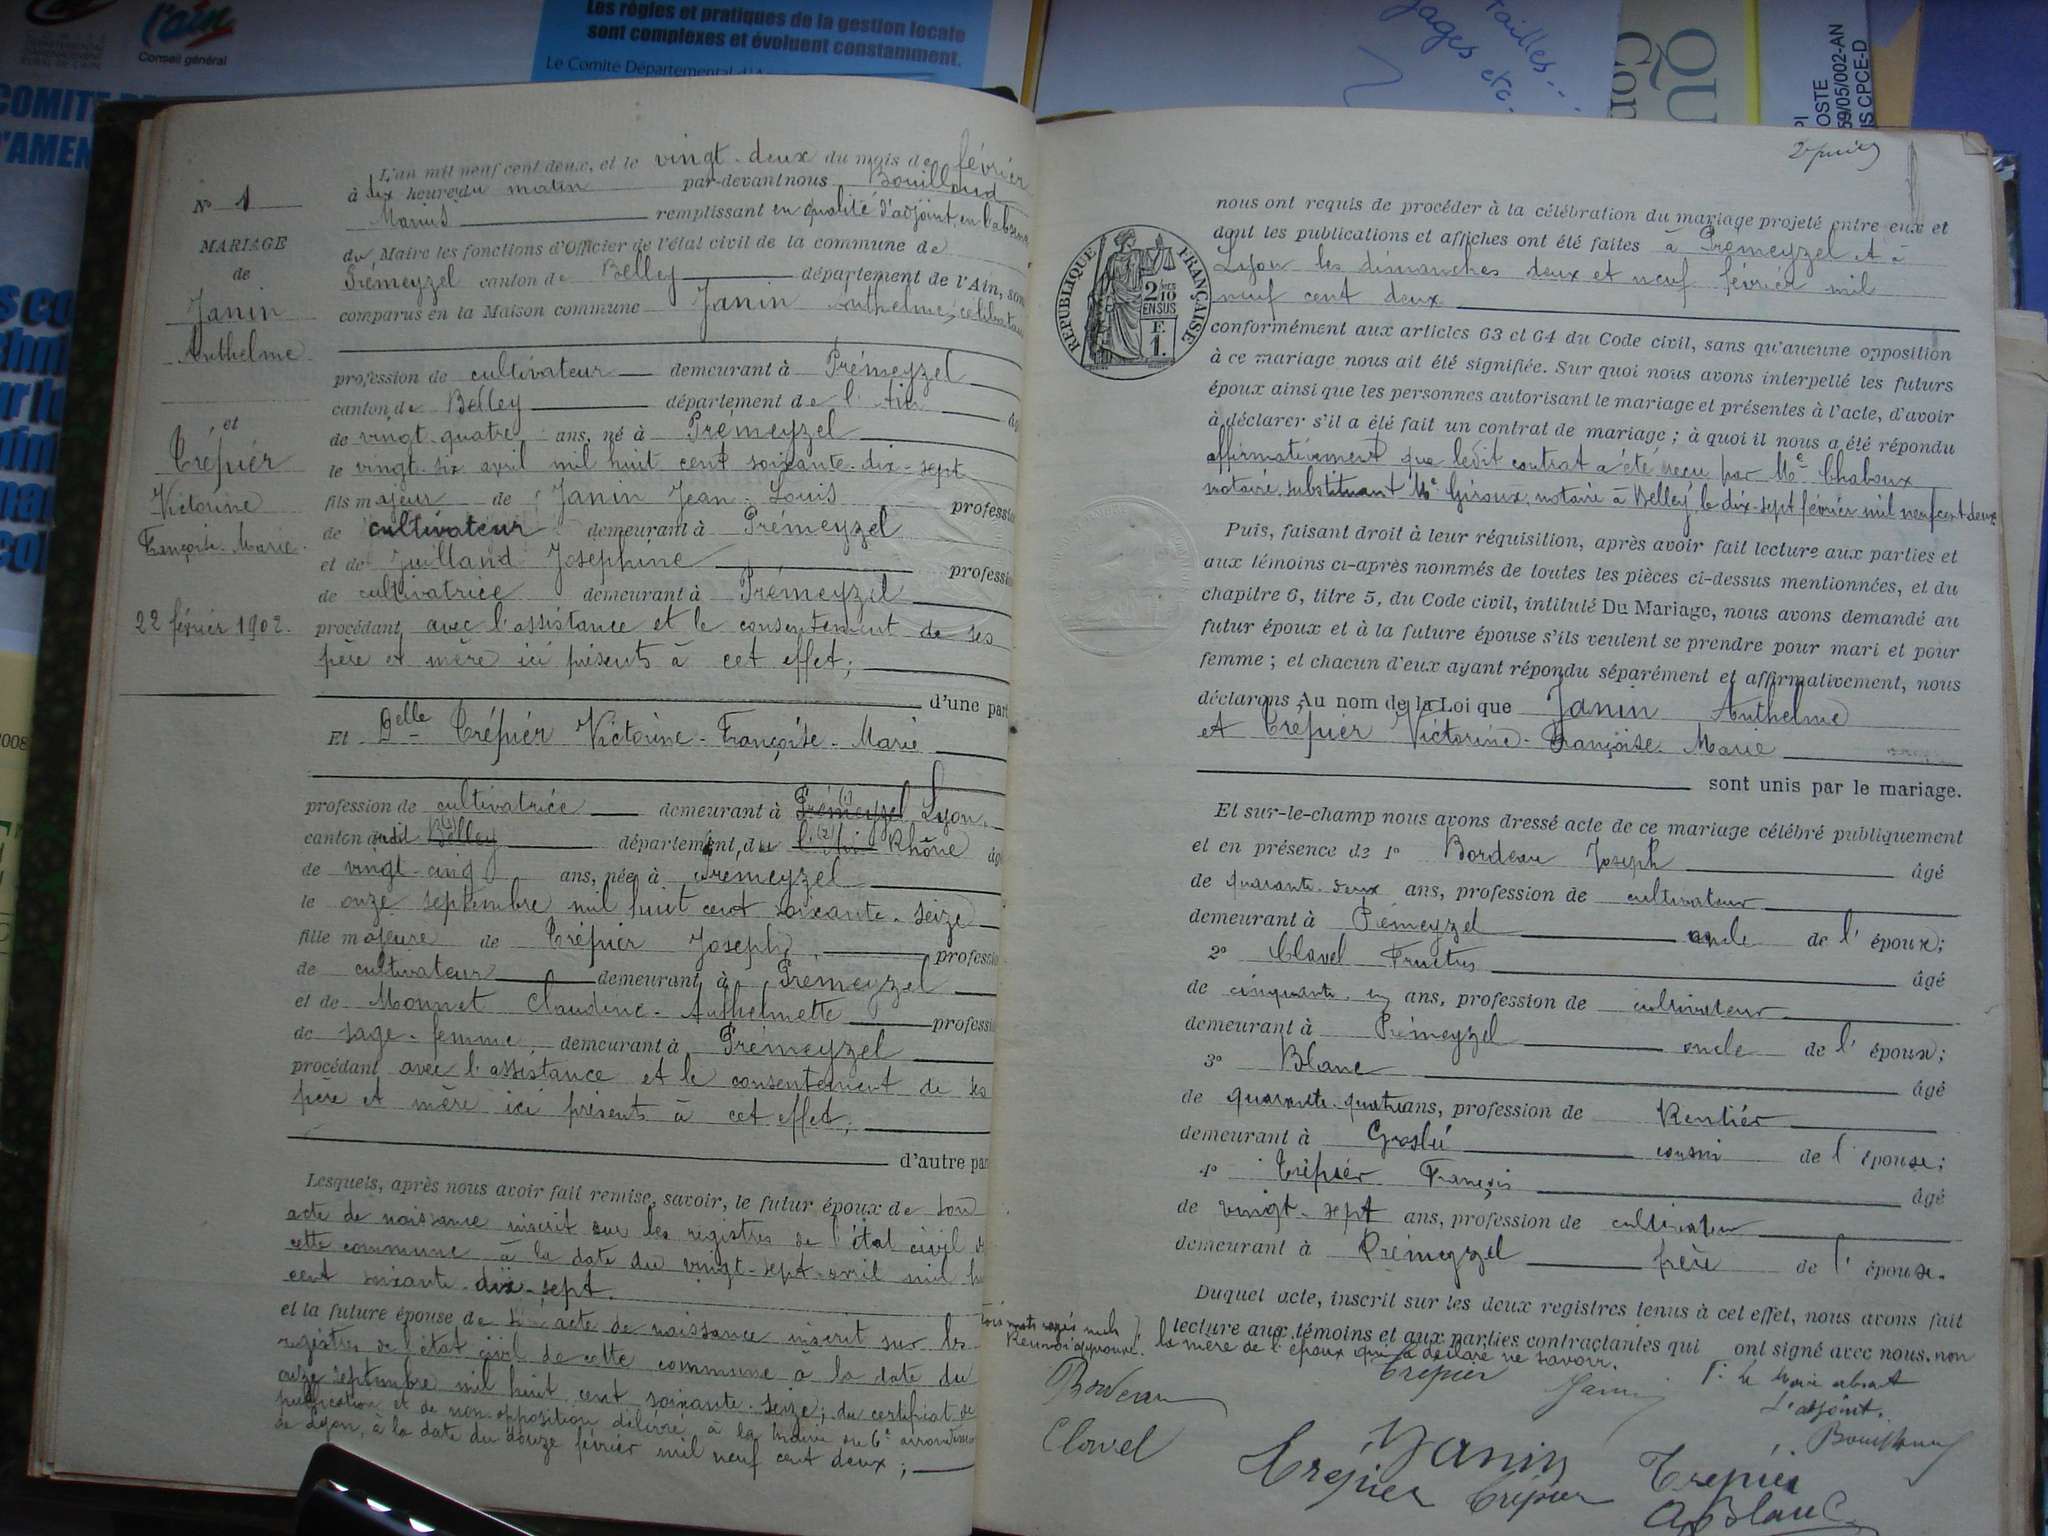 l'ain
Conseil général
Les règles et pratiques de la gestion locale
sont complexes et évoluent constamment.
Le Comité Départemental d'A
COMITE
D'AMEN
tailles...
gages etc.
QU
Con
OSTE
59/05/002-AN
S CPCE-D
2008
N° 1
MARIAGE
de
Janin
Anthelme
et
Trépier
Victorine
Françoise-Marie
22 février 1902.
L'an mil neuf cent deux, et le vingt-deux du mois de février
à dix heures du matin par-devant nous Bouilloud
Marius remplissant en qualité d'adjoint, en l'absence
du Maire les fonctions d'Officier de l'état civil de la commune de
Prémeyzel canton de Belley département de l'Ain, son
comparus en la Maison commune Janin Anthelme, célibataire
profession de cultivateur demeurant à Prémeyzel
canton de Belley département de l'Ain âg
de vingt-quatre ans, né à Prémeyzel
le vingt-six avril mil huit cent soixante-dix-sept
fils majeur de Janin Jean-Louis profession
de cultivateur demeurant à Prémeyzel
et de Juilland Josephine profession
de cultivatrice demeurant à Prémeyzel
procédant avec l'assistance et le consentement de ses
père et mère ici présents à cet effet;
d'une part
Et Delle Trépier Victorine-Françoise-Marie
profession de cultivatrice demeurant à Prémeyzel (1) Lyon
canton dudit Belley département du l'Ain (2) Rhône âg
de vingt-cinq ans, née à Prémeyzel
le onze septembre mil huit cent soixante-seize
fille majeure de Trépier Joseph, profession
de cultivateur demeurant à Prémeyzel
et de Monnet Claudine-Anthelmette profession
de sage-femme demeurant à Prémeyzel
procédant avec l'assistance et le consentement de ses
père et mère ici présents à cet effet;
d'autre par
Lesquels, après nous avoir fait remise, savoir, le futur époux de son
acte de naissance inscrit sur les registres de l'état civil de
cette commune à la date du vingt-sept avril mil hu
cent soixante-dix-sept.
et la future épouse de son acte de naissance inscrit sur les
registres de l'état civil de cette commune à la date du
onze septembre mil huit cent soixante-seize; du certificat de
publication et de non opposition délivré à la mairie du 6e arrondisse
de Lyon, à la date du douze février mil neuf cent deux;
RÉPUBLIQUE FRANÇAISE
2/10
EN SUS
F.
1.
nous ont requis de procéder à la célébration du mariage projeté entre eux et
dont les publications et affiches ont été faites à Prémeyzel et à
Lyon les dimanches deux et neuf février mil
neuf cent deux
conformément aux articles 63 et 64 du Code civil, sans qu'aucune opposition
à ce mariage nous ait été signifiée. Sur quoi nous avons interpellé les futurs
époux ainsi que les personnes autorisant le mariage et présentes à l'acte, d'avoir
à déclarer s'il a été fait un contrat de mariage; à quoi il nous a été répondu
affirmativement que ledit contrat a été reçu par Me Chaboux
notaire substituant Me Giroux, notaire à Belley, le dix-sept février mil neuf cent deux
Puis, faisant droit à leur réquisition, après avoir fait lecture aux parties et
aux témoins ci-après nommés de toutes les pièces ci-dessus mentionnées, et du
chapitre 6, titre 5, du Code civil, intitulé Du Mariage, nous avons demandé au
futur époux et à la future épouse s'ils veulent se prendre pour mari et pour
femme; et chacun d'eux ayant répondu séparément et affirmativement, nous
déclarons Au nom de la Loi que Janin Anthelme
et Trépier Victorine-Françoise-Marie
sont unis par le mariage.
Et sur-le-champ nous avons dressé acte de ce mariage célébré publiquement
et en présence de 1° Bordeau Joseph âgé
de quarante-deux ans, profession de cultivateur
demeurant à Prémeyzel oncle de l'époux;
2° Clavel Fructus âgé
de cinquante-un ans, profession de cultivateur
demeurant à Prémeyzel oncle de l'époux;
3° Blanc âgé
de quarante-quatre ans, profession de Rentier
demeurant à Groslée cousin de l'épouse;
4° Trépier François âgé
de vingt-sept ans, profession de cultivateur
demeurant à Prémeyzel frère de l'épouse.
Duquel acte, inscrit sur les deux registres tenus à cet effet, nous avons fait
lecture aux témoins et aux parties contractantes qui ont signé avec nous, non
la mère de l'époux qui a déclaré ne savoir.
trois mots rayés nuls
Renvoi approuvé.
Bordeau
Trépier
Janin
P. le Maire absent
L'adjoint.
Bouilloud
Clavel
Janin
Trépier
Trépier
Trepier
A Blanc